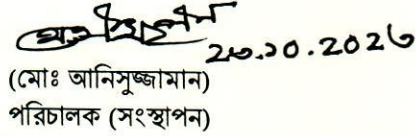 ২৩.১০.২০২৩
(মোঃ আনিসুজ্জামান)
পরিচালক (সংস্থাপন)